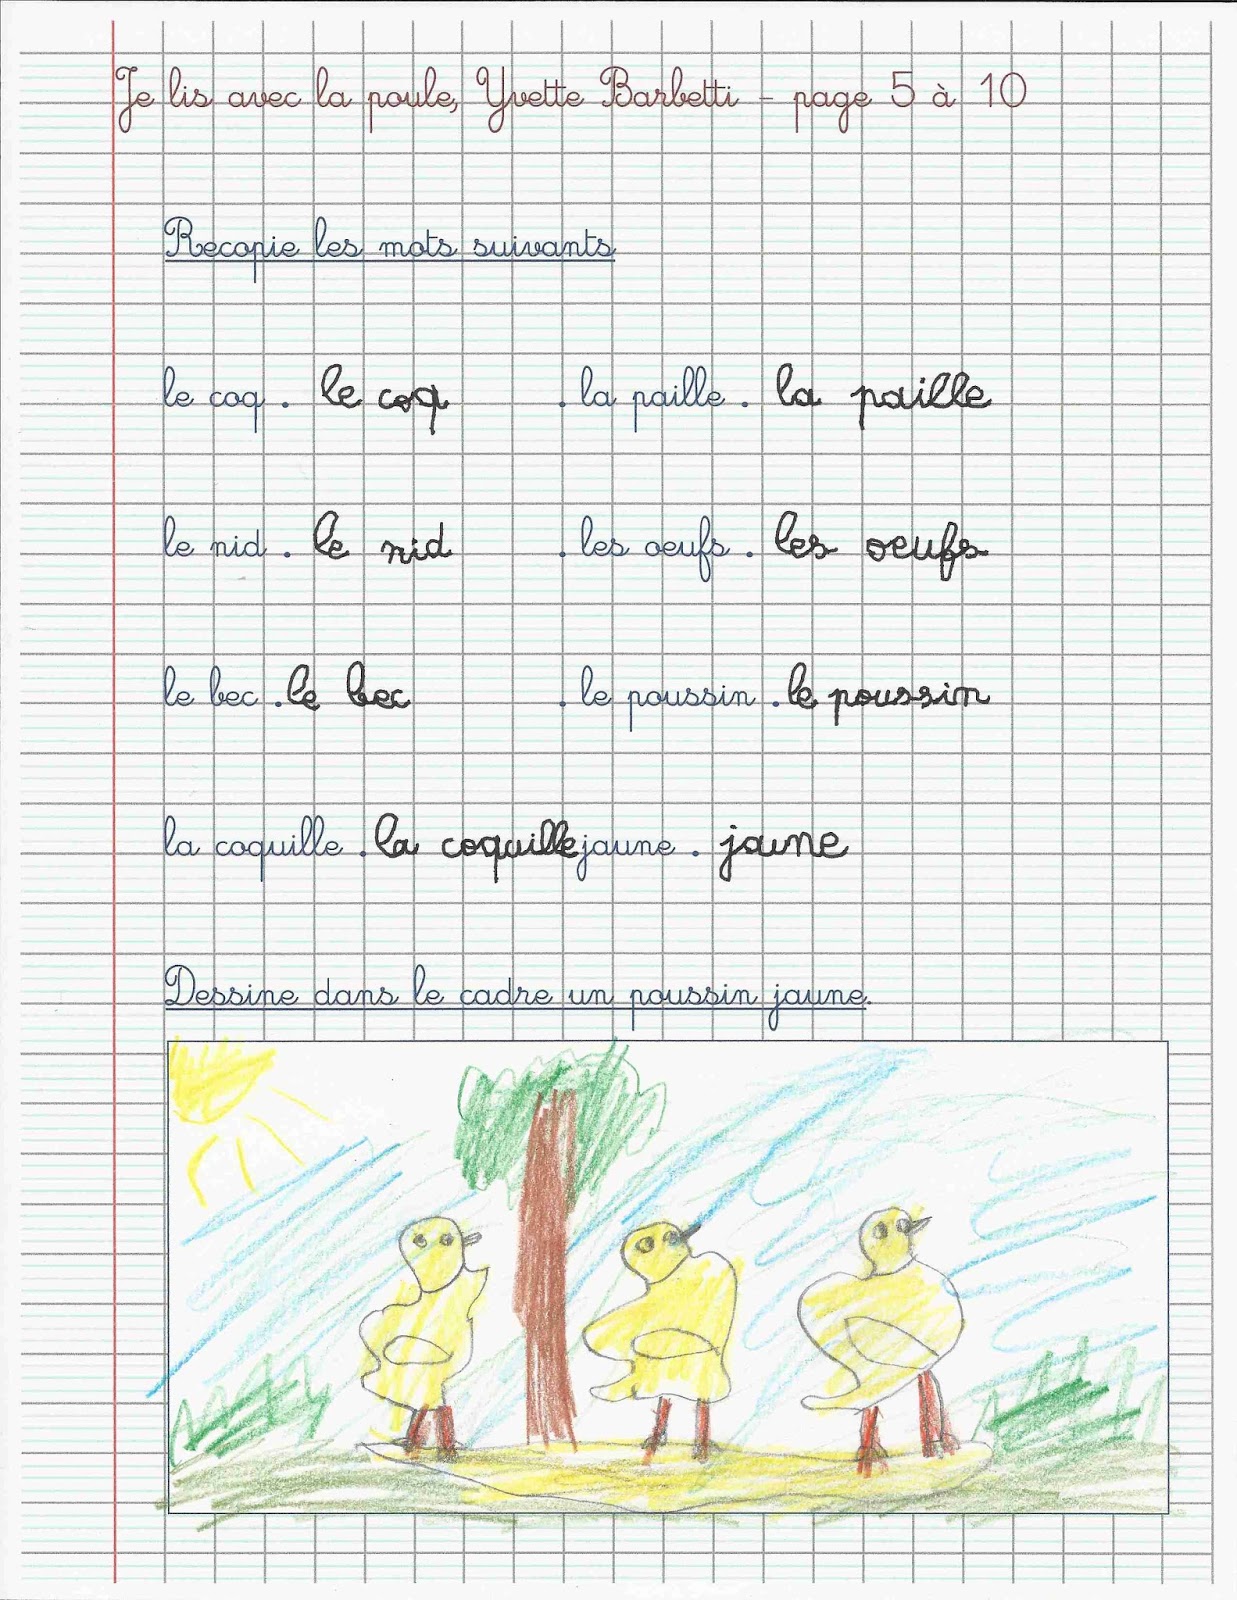 Je lis avec la poule, Yvette Barbetti - page 5 à 10
Recopie les mots suivants
le coq . le coq . la paille . la paille
le nid . le nid . les oeufs . les oeufs
le bec . le bec . le poussin . le poussin
la coquille . la coquille jaune . jaune
Dessine dans le cadre un poussin jaune.